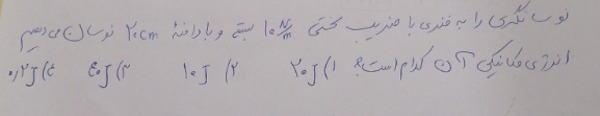 نوسانگری را به فنری با ضریب سختی ۱۰ N/m بسته و با دامنهٔ ۲۰ cm نوسان می‌دهیم
انرژی مکانیکی آن کدام است؟ ۱) ۲۰ J ۲) ۱۰ J ۳) ۴۰ J ۴) ۰٫۲ J